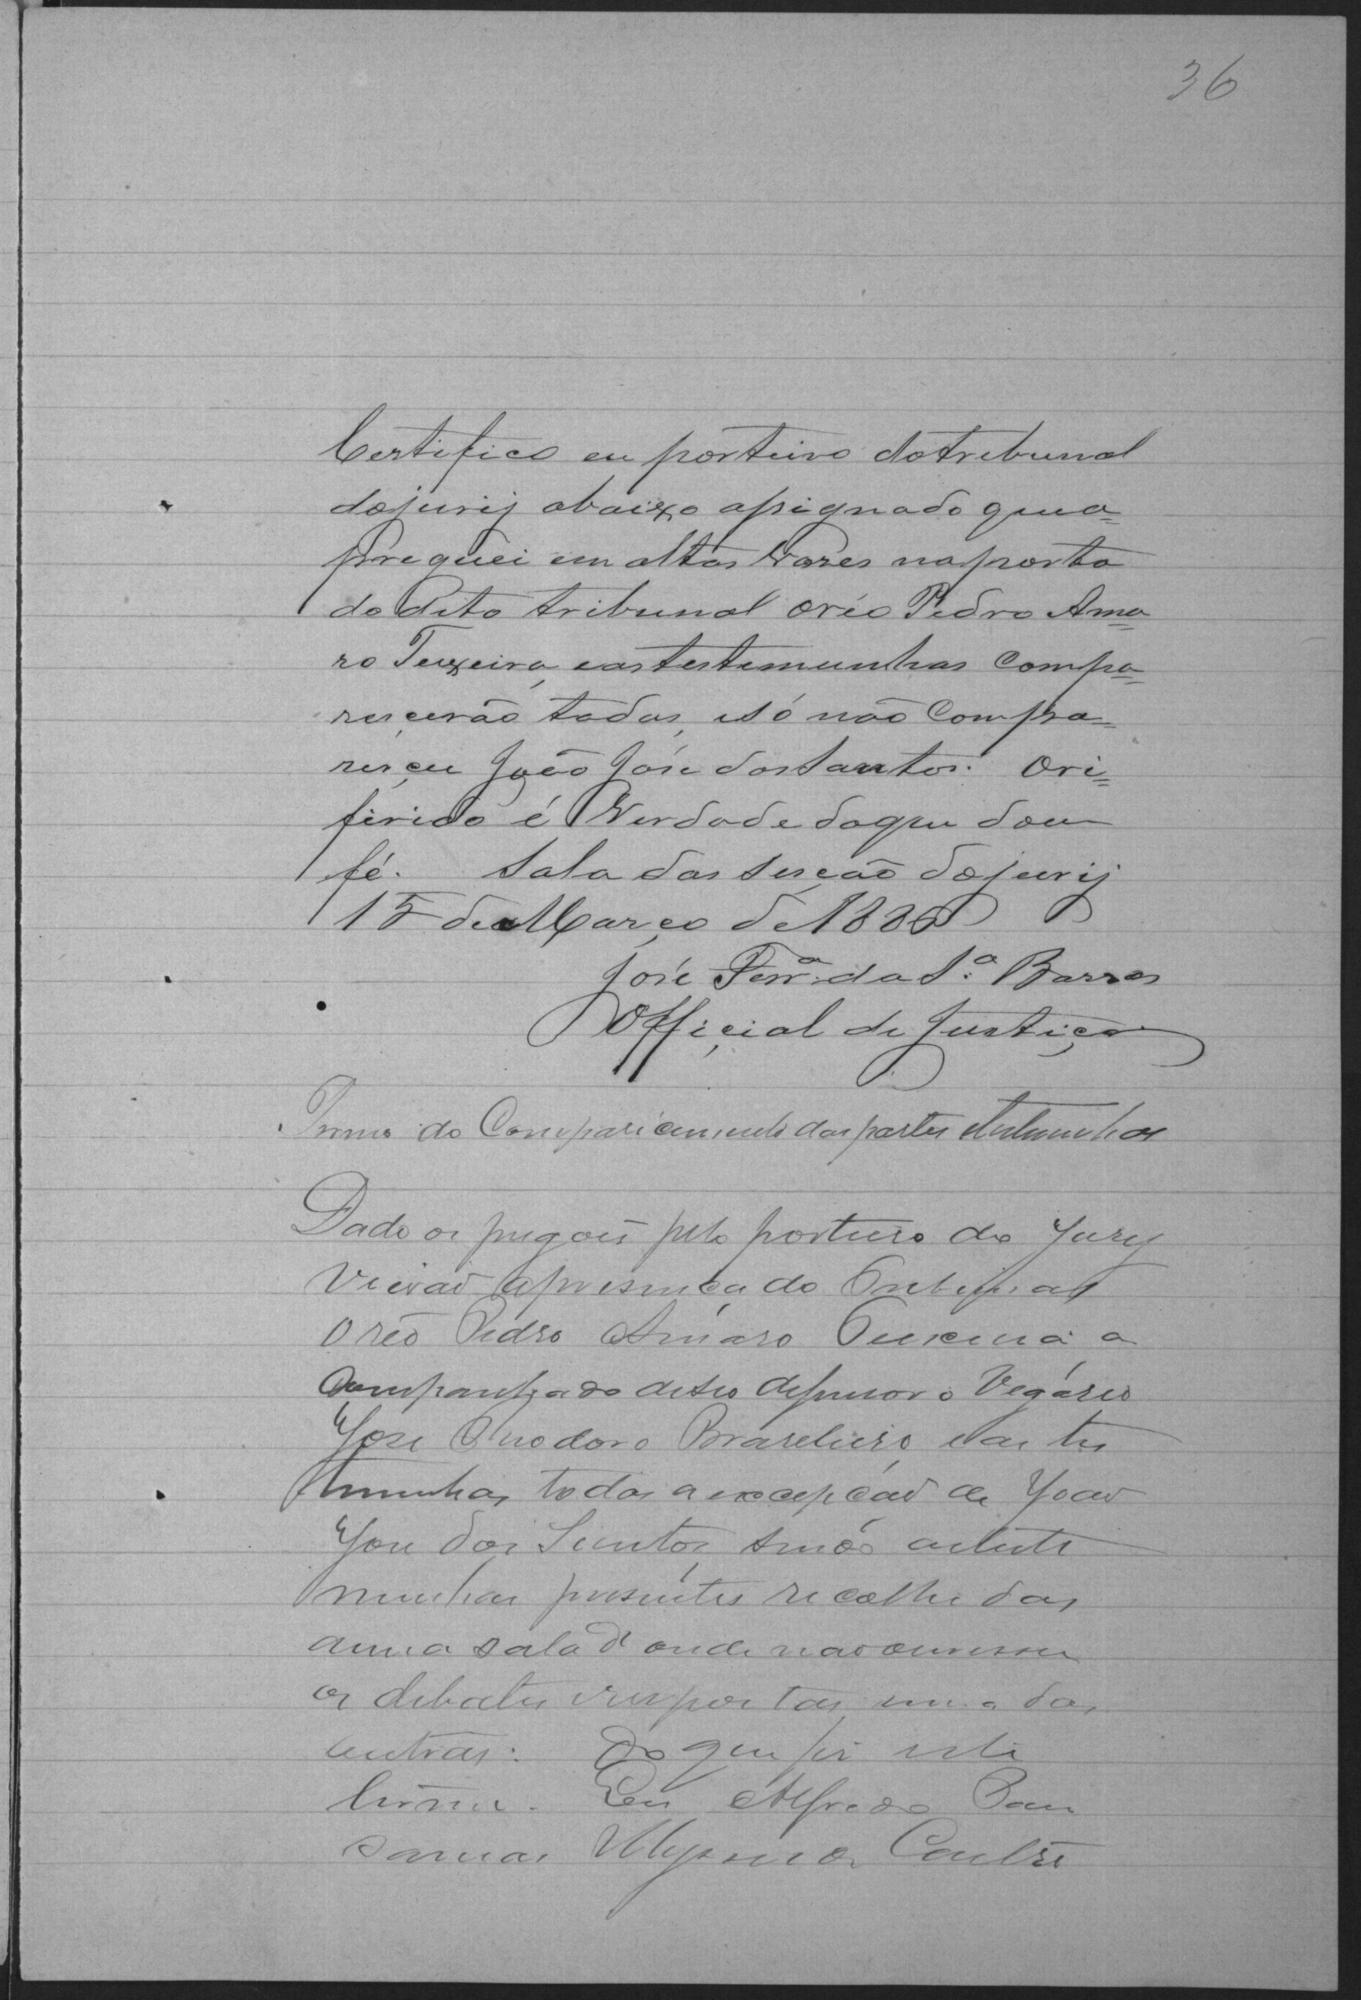 36
Certifico eu porteiro dotribunal
dojurij abaixo assignado que a=
preguei em altas Vozes naporta
do dito tribunal oréo Pedro Ama=
ro Teixeira, eastestemunhas compa=
rescerão todas, esó não Compa=
resçeu João José dos Santos. Ore=
firido é Verdade doque dou
fé. Sala das Sesção dojurij
15 de Março de 188
José Ferrª da Sª Barros
Offiçial de Justiça
Termo do Comparicimento das partes etestemunhas
Dado os pregoês pelo porteiro do Jury
vierão apresença do
o réo Pedro Amaro Teixeira a
companhado deseo defensor o Vegário
José Theodoro Brazeleiro, eas tes
temunhas todas a excepção de João
José dos Santos, asteste
munhas presentes recolhidas
auma sala d'onde não ouvissem
os debates erespostas umas das
outras. Do que fis este
termo. Eu Alfredo